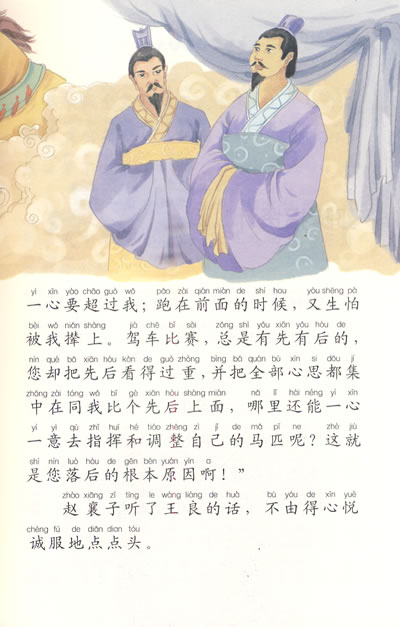 yì xīn yào chāo guò wǒ pǎo zài qián miàn de shí hou yòu shēng pà
一心要超过我；跑在前面的时候，又生怕
bèi wǒ niǎn shàng jià chē bǐ sài zǒng shì yǒu xiān yǒu hòu de
被我撵上。驾车比赛，总是有先有后的，
nín què bǎ xiān hòu kàn de guò zhòng bìng bǎ quán bù xīn si dōu jí
您却把先后看得过重，并把全部心思都集
zhōng zài tóng wǒ bǐ gè xiān hòu shàng miàn nǎ lǐ hái néng yì xīn
中在同我比个先后上面，哪里还能一心
yí yì qù zhǐ huī hé tiáo zhěng zì jǐ de mǎ pǐ ne zhè jiù
一意去指挥和调整自己的马匹呢？这就
shì nín luò hòu de gēn běn yuán yīn a
是您落后的根本原因啊！”
zhào xiāng zǐ tīng le wáng liáng de huà bù yóu de xīn yuè
赵襄子听了王良的话，不由得心悦
chéng fú de diǎn dian tóu
诚服地点点头。